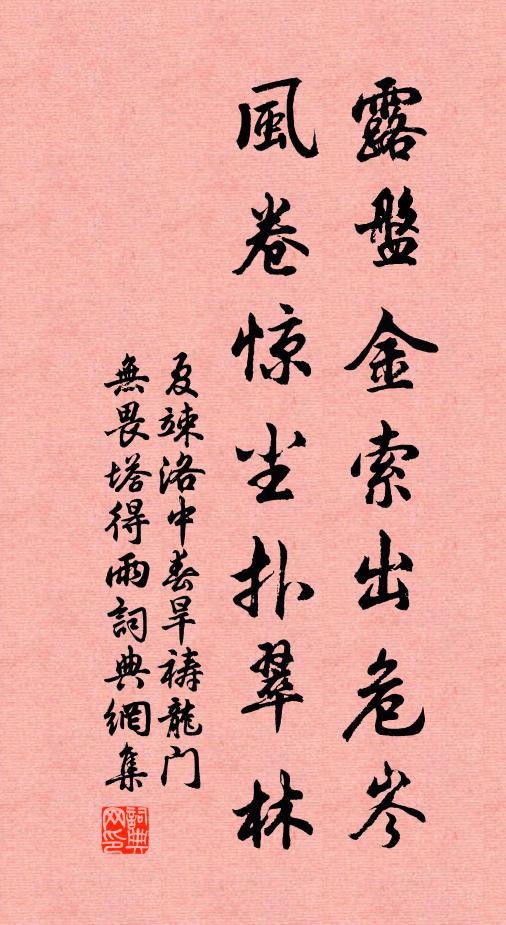 露盤金索出危岑
風卷惊尘扑翠林
夏竦洛中春旱禱龍门
無畏塔得雨詞典網集
詞典网印